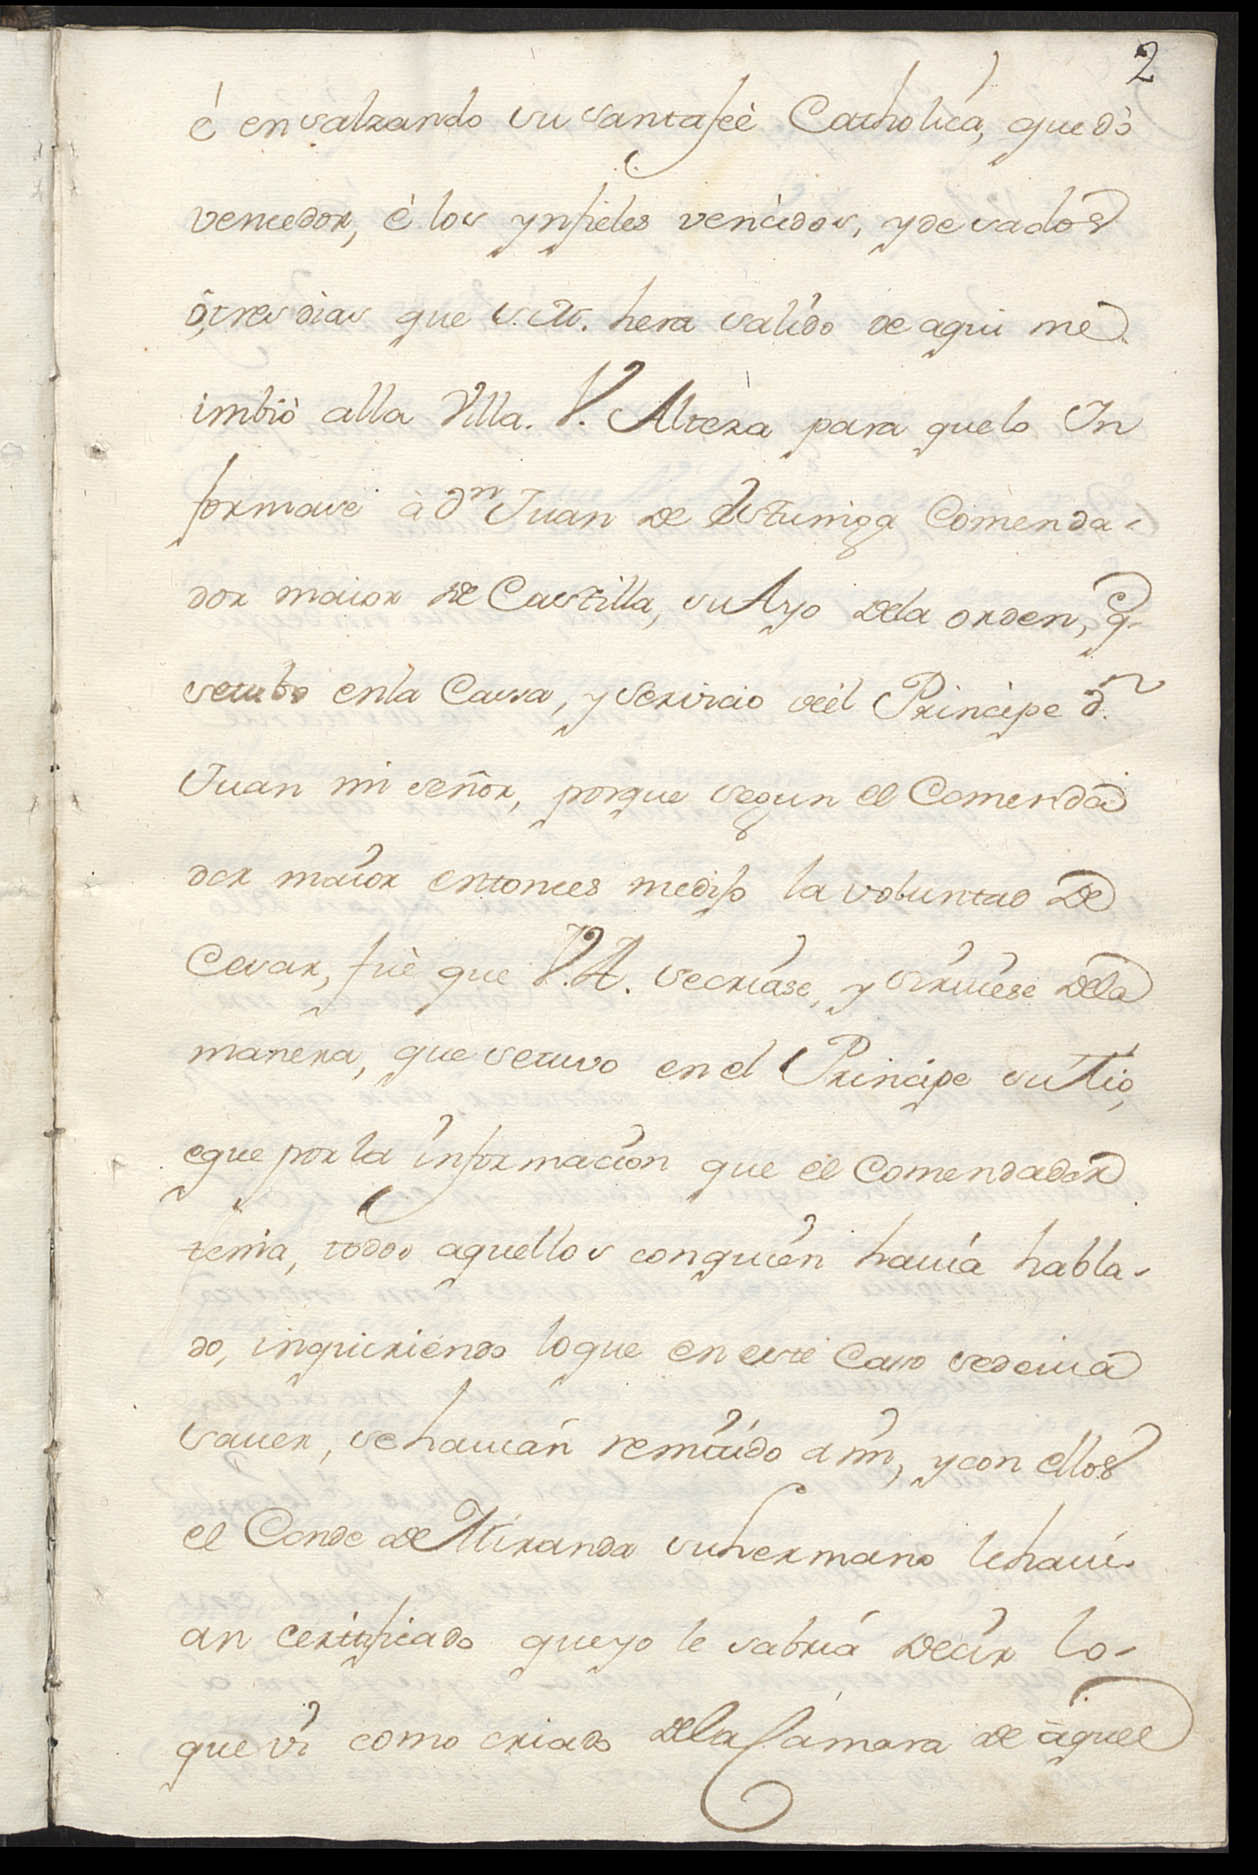 2
é ensalzando su santa feè Catholica, quedò
vencedor, è los ynfieles vencidos, y desados
ò, tres dias que S.M. hera salido de aqui me
imbiò alla Villa. V. Alteza para quelo In
formase à Dn Juan de Estuniga Comenda-
dor maior de Castilla, su Ayo dela orden, q.
setubo enla Casa, y Servicio deel Principe Dn.
Juan mi señor, porque segun el Comenda
dor maior entonces medijo la voluntad de
Cesar, fuè que V.A. secriase, y sirviese dela
manera, que setuvo en el Principe su tio,
eque por la informacion que el Comendador
tenia, todos aquellos conquien havia habla-
do, inquiriendo loque en este Caso sedevia
saver, sehavian remitido a mi, y con ellos
el Conde de Miranda suhermano lehavi-
an certificado queyo le sabria decir lo-
que vi como criado dela Camara de aquel